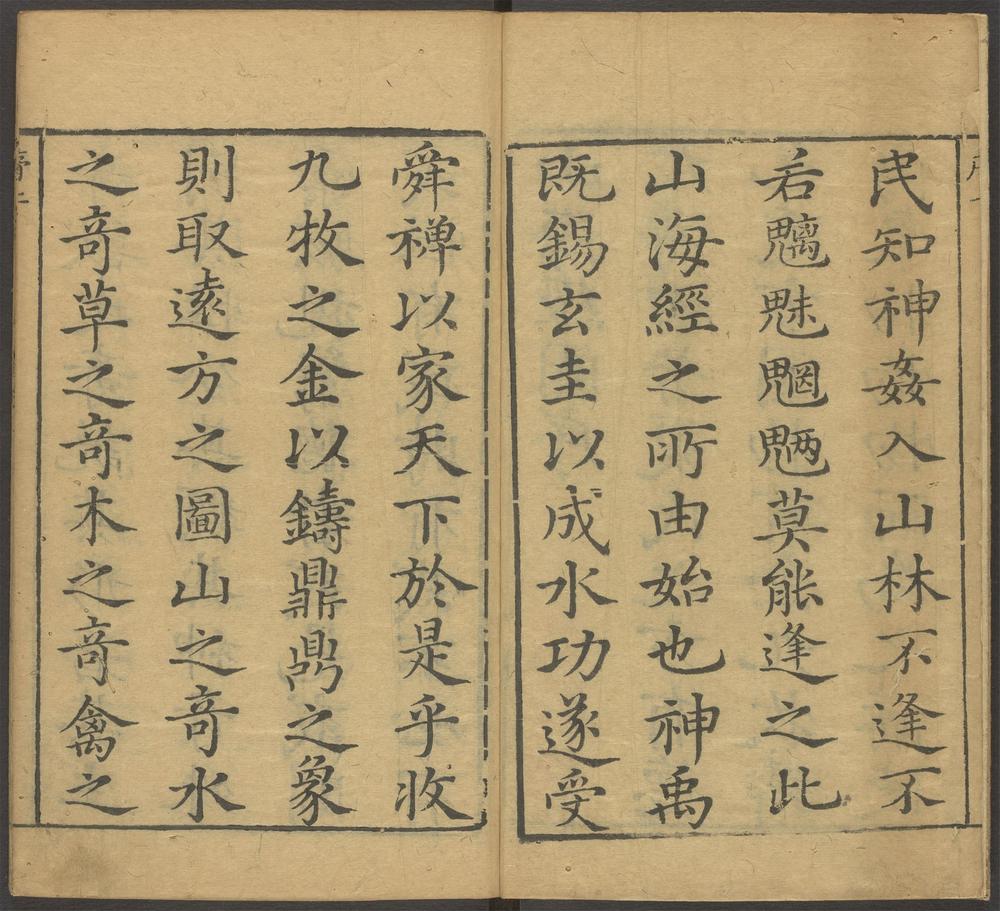 民知神姦入山林不逢不
若魑魅魍魎莫能逢之此
山海經之所由始也神禹
既錫玄圭以成水功遂受
舜禪以家天下於是乎收
九牧之金以鑄鼎鼎之象
則取遠方之圖山之竒水
之竒草之竒木之竒禽之